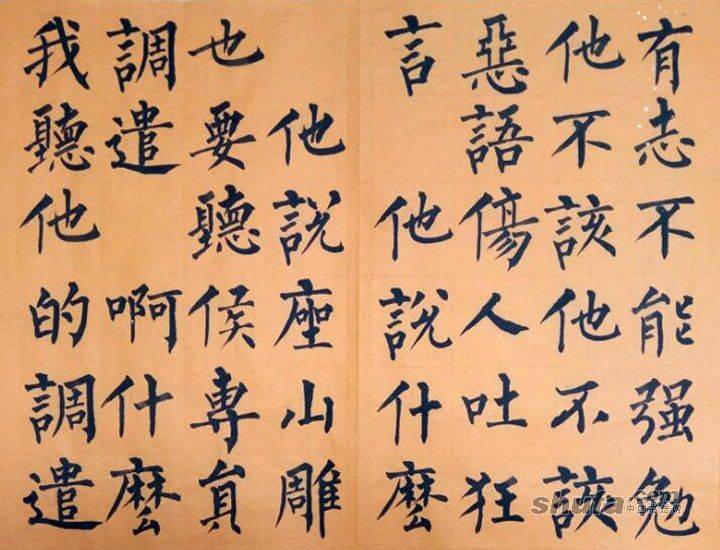 有志不能强勉
他不該他不該
惡語傷人吐狂
言 他說什麼
他說座山雕
也要聽侯專貟
調遣 啊什麼
我聽他的調遣